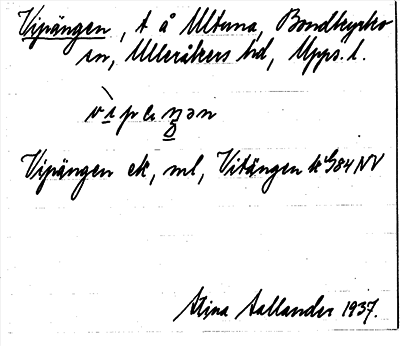 Vipängen, t å Ultuna, Bondkyrko
sn, Ulleråkers hd, Upps. l.
Vipängen ek, ml, Vitängen k G84 NV
Stina Aallander 1937.